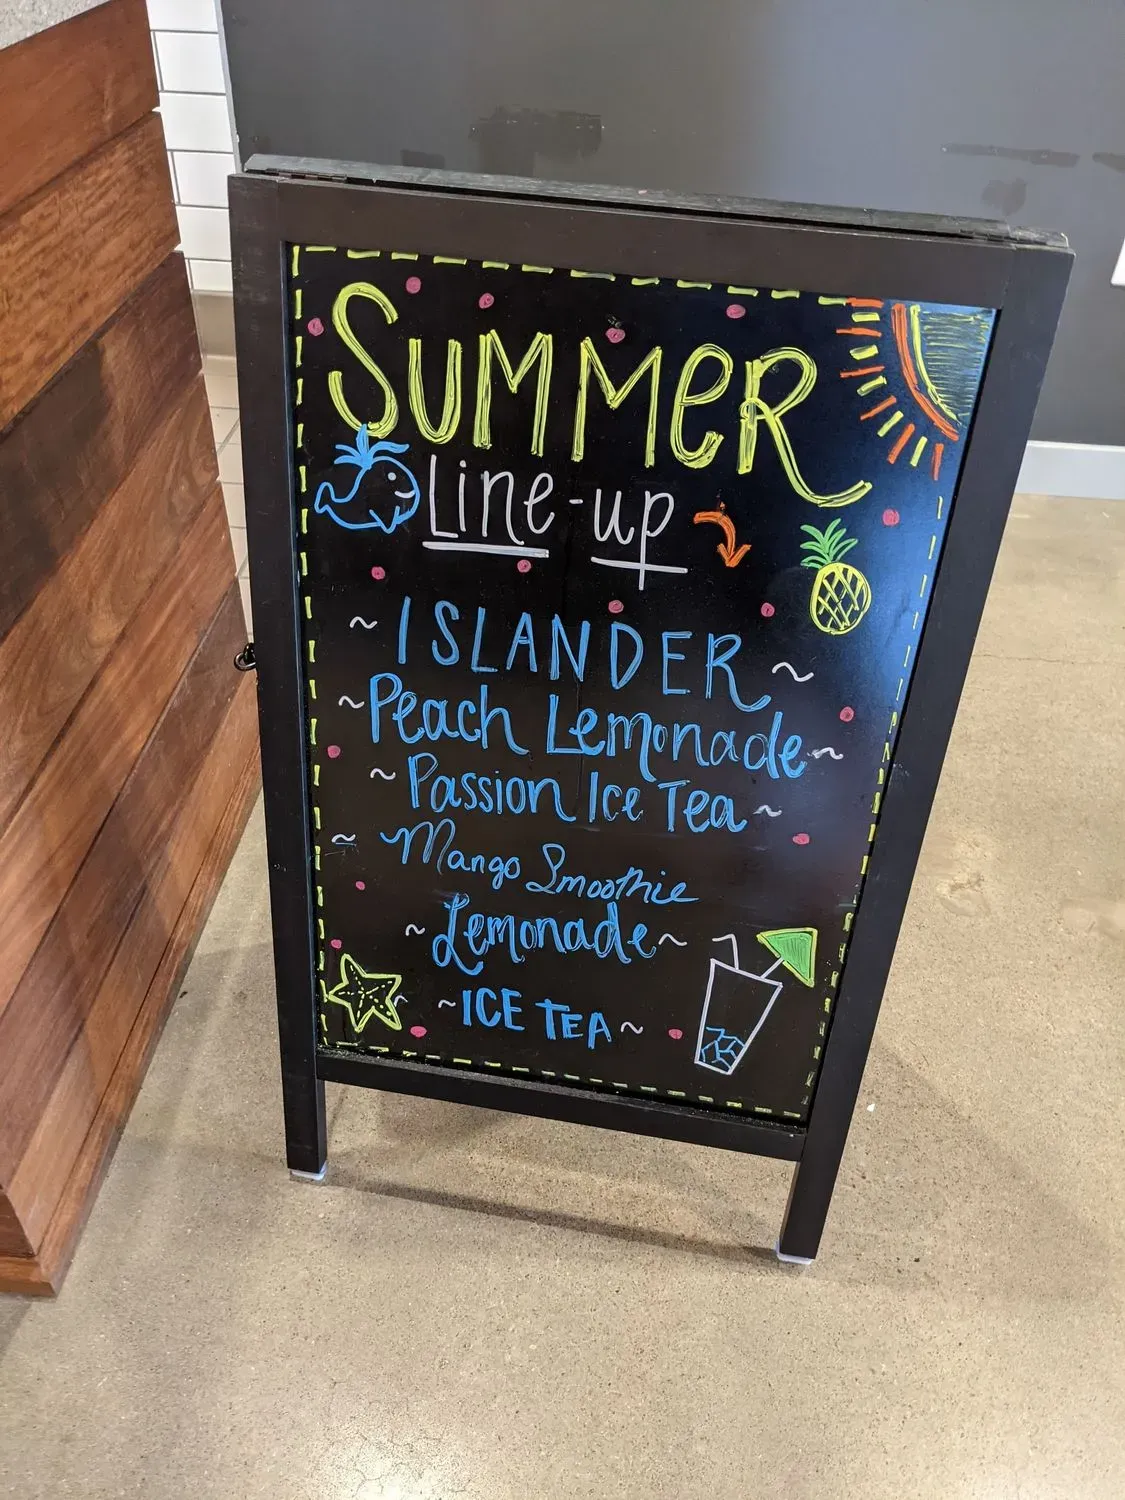 SUMMER
Line-up
~ ISLANDER ~
~ Peach Lemonade ~
~ Passion Ice Tea ~
~ Mango Smoothie
~ Lemonade ~
~ ICE TEA ~